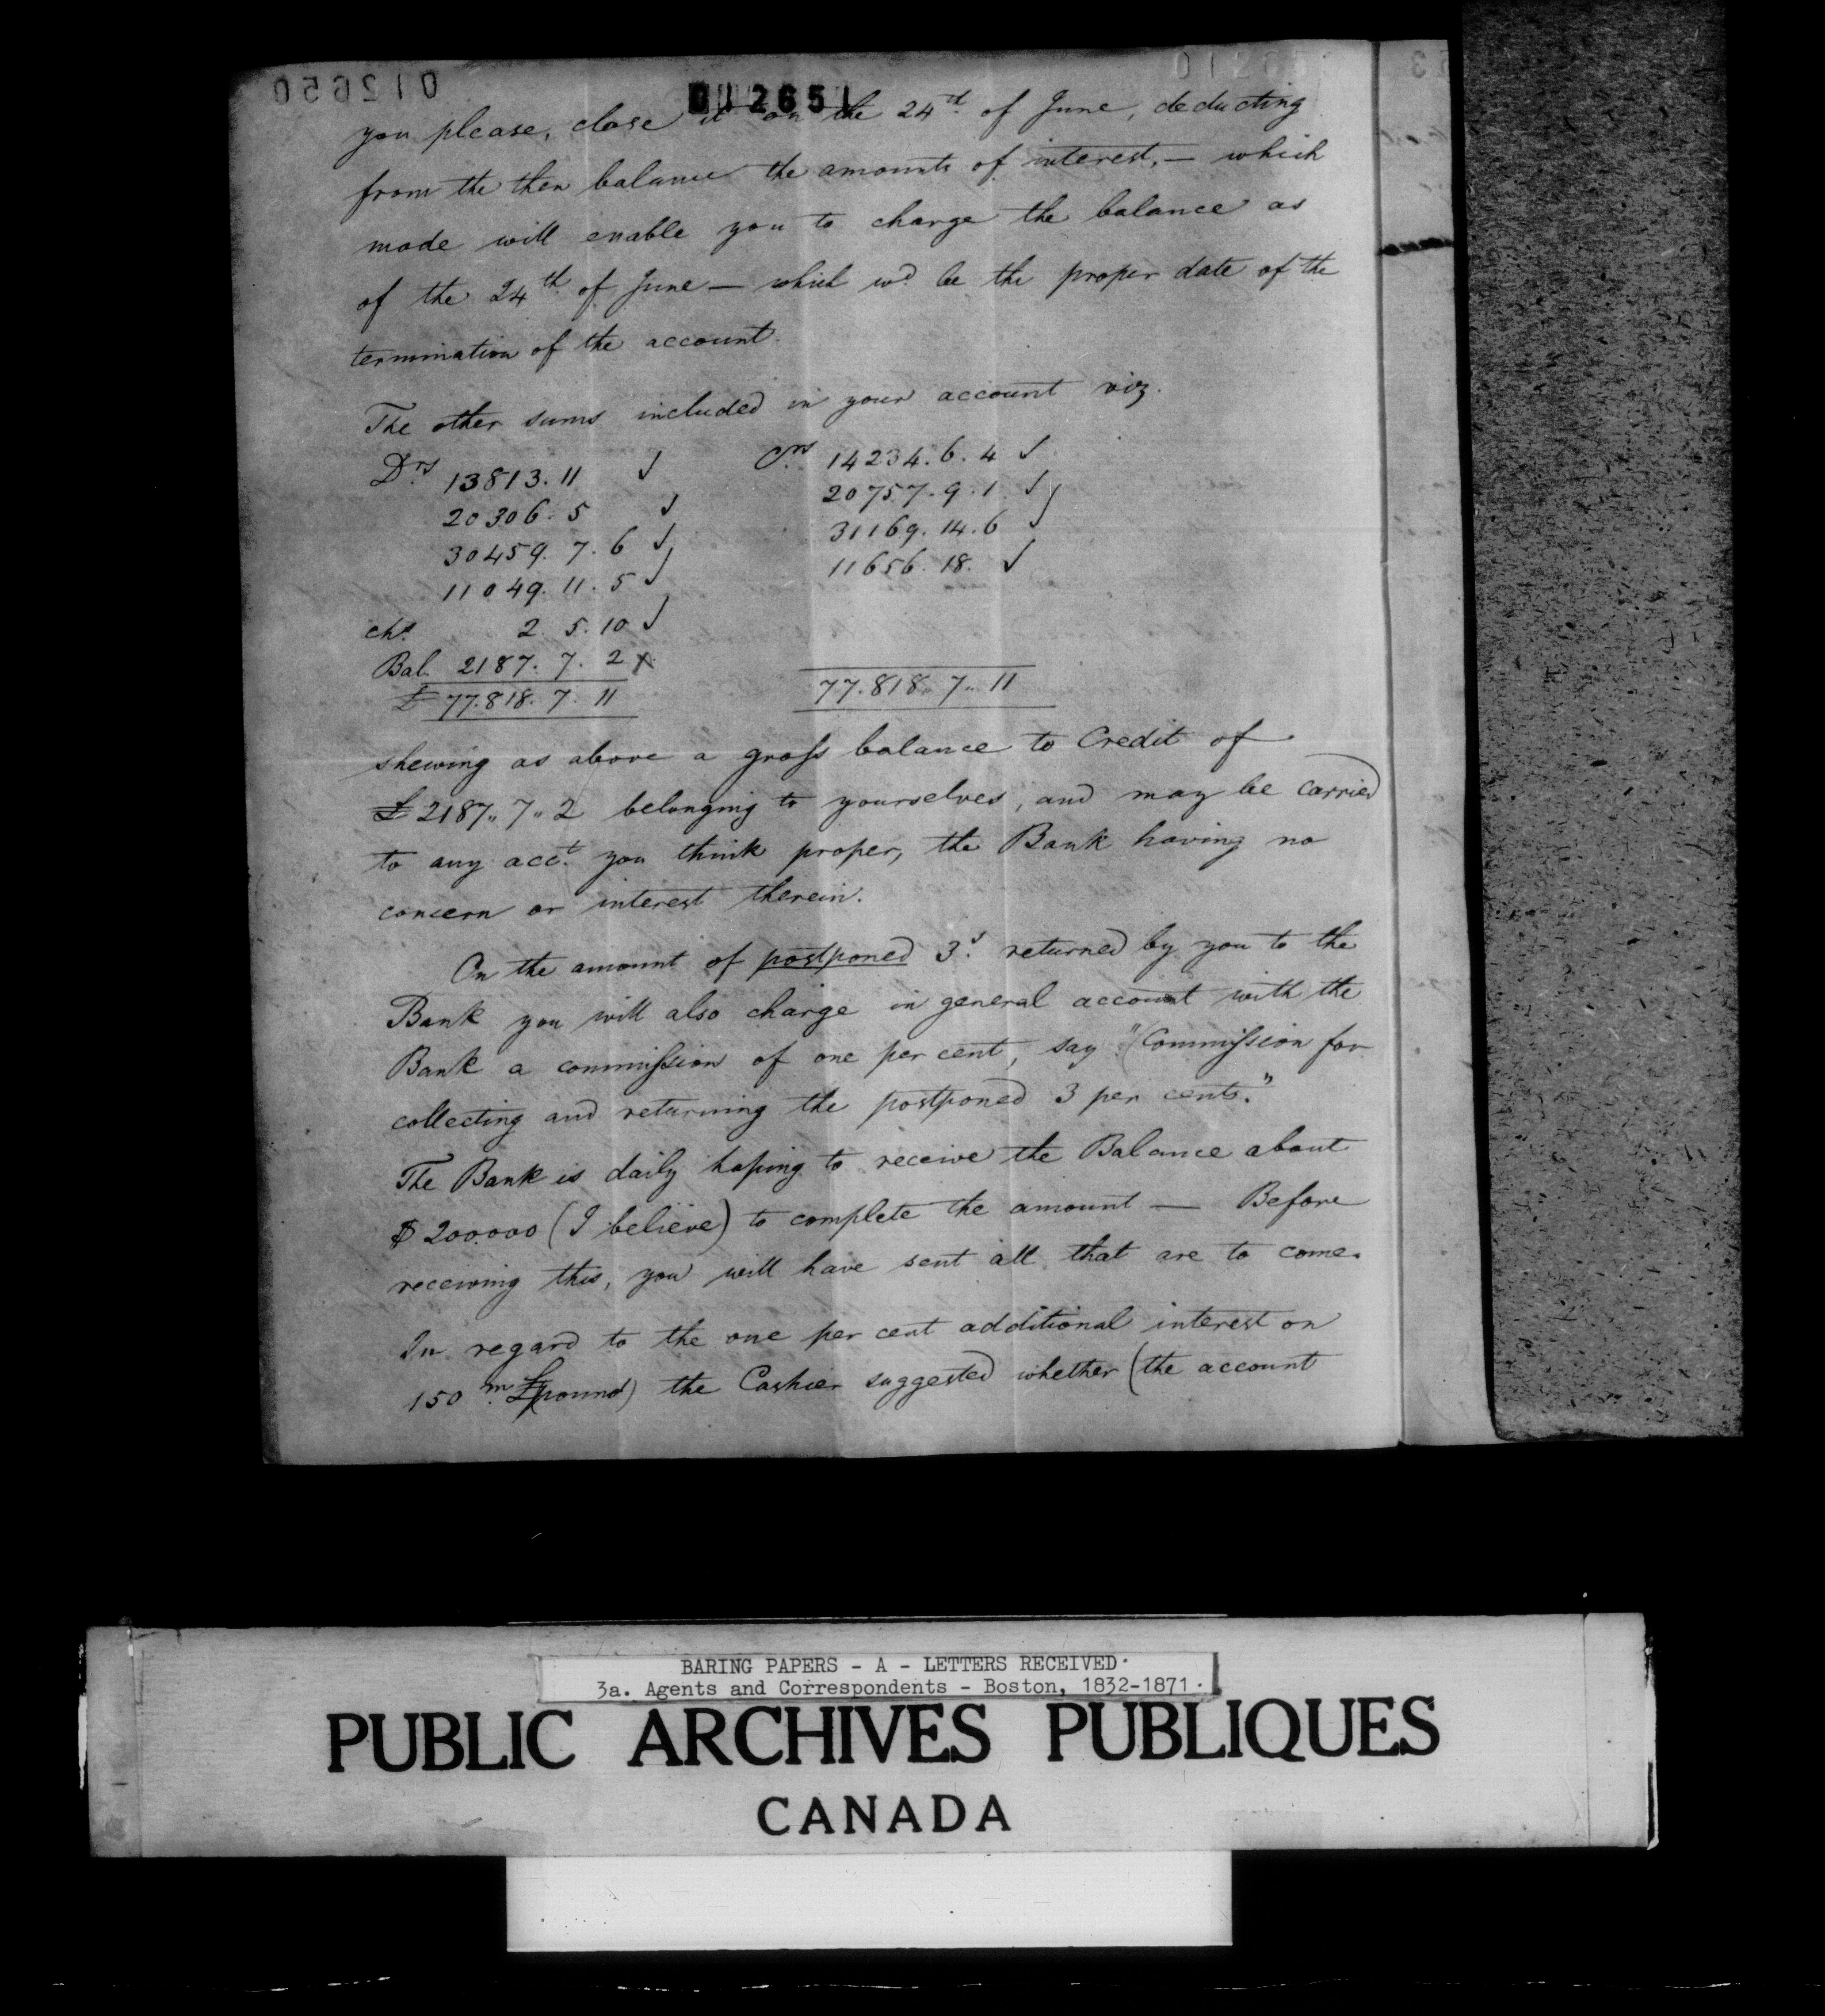 012650
012651
you please, close it on the 24th of June, deducting
from the then balance the amounts of interest, — which
mode will enable you to charge the balance as
of the 24th of June — which wd be the proper date of the
termination of the account.
The other sums included in your account viz.
Drs 13813. 11 Crs 14234. 6. 4
20306. 5 20757. 9. 1
30459. 7. 6 31169. 14. 6
11049. 11. 5 11656. 18.
chs. 2. 5. 10
Bal. 2187. 7. 2
£ 77.818. 7. 11 77.818. 7. 11
shewing as above a gross balance to Credit of
£2187. 7. 2 belonging to yourselves, and may be carried
to any acct. you think proper, the Bank having no
concern or interest therein.
On the amount of postponed 3s. returned by you to the
Bank you will also charge in general account with the
Bank a commission of one per cent, say "Commission for
collecting and returning the postponed 3 per cents."
The Bank is daily hoping to receive the Balance about
$200.000 (I believe) to complete the amount — Before
receiving this, you will have sent all that are to come.
In regard to the one per cent additional interest on
150 m £(pound) the Cashier suggested whether (the account
BARING PAPERS - A - LETTERS RECEIVED.
3a. Agents and Correspondents - Boston, 1832-1871.
PUBLIC ARCHIVES PUBLIQUES
CANADA